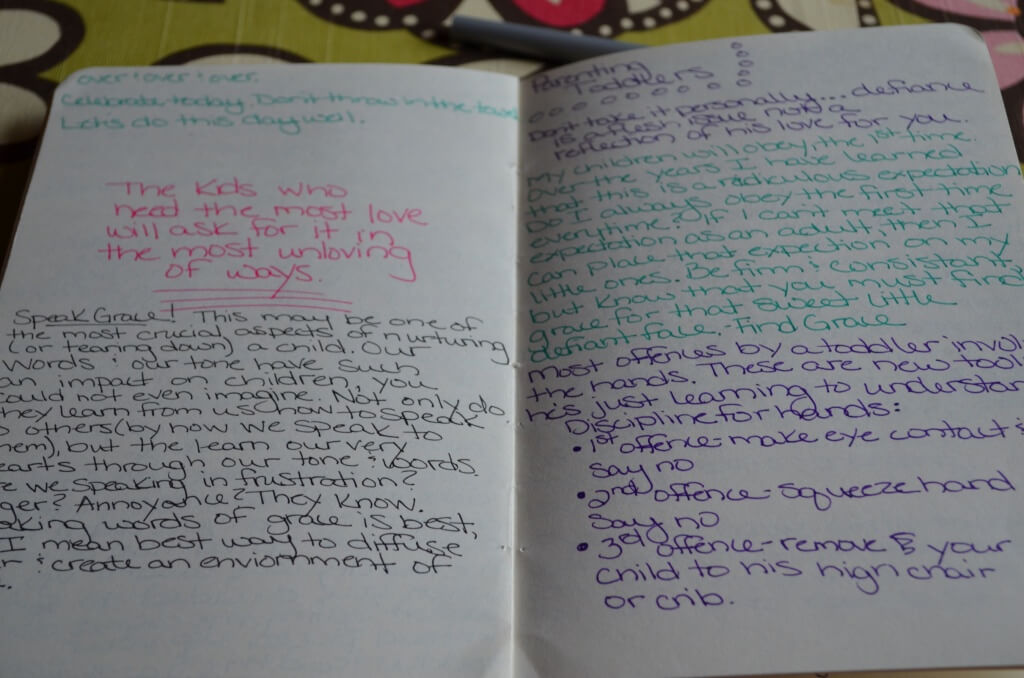 over & over & over.
Celebrate today. Don't throw in the towel
Let's do this day well.
The Kids who
need the most love
will ask for it in
the most unloving
of ways.
Speak Grace! This may be one of
the most crucial aspects of nurturing
(or tearing down) a child. Our
words & our tone have such
an impact on children, you
could not even imagine. Not only do
they learn from us how to speak
o others (by how we speak to
hem), but the learn our very
earts through our tone & words
e we speaking in frustration?
ger? Annoyance? They know.
aking words of grace is best,
I mean best way to diffuse
r & create an enviornment of
Parenting
Toddlers
Don't take it personally... defiance
is a flesh issue not a
reflection of his love for you.
My children will obey, the 1st time.
over the years I have learned
that this is a rediculous expectation
Do I always obey the first time
everytime? If I can't meet that
expectation as an adult, then I
can place that expection on my
little ones. Be firm & consistant,
but know that you must find
grace for that sweet little
defiant face. - Find Grace
most offences by a toddler invol
the hands. These are new tool
he's just learning to understan
Discipline for hands:
• 1st offence - make eye contact &
say no
• 2nd offence - squeeze hand
say no
• 3rd offence - remove & your
child to his high chair
or crib.